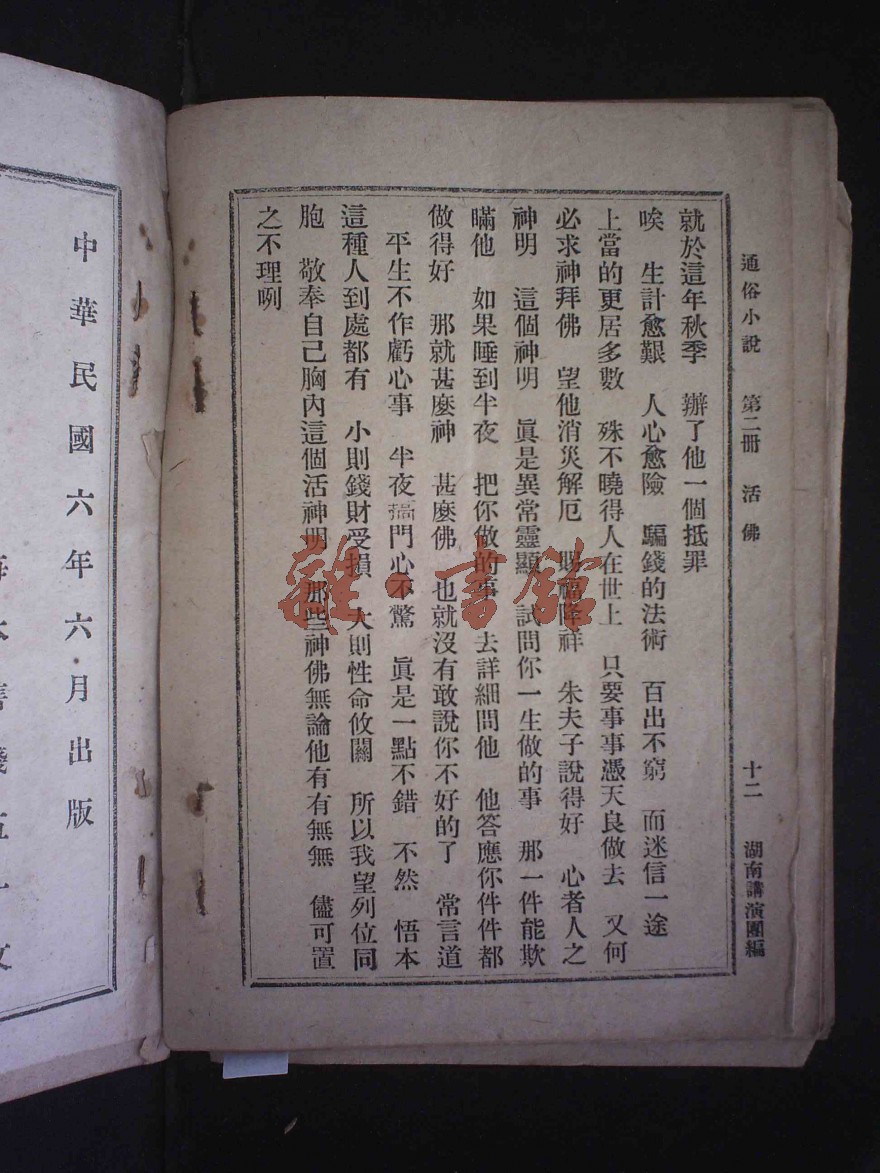 通俗小說　第二册　活佛　十二　湖南講演團編
就於這年秋季　辦了他一個抵罪
唉　生計愈艱　人心愈險　騙錢的法術　百出不窮　而迷信一途
上當的更居多數　殊不曉得人在世上　只要事事憑天良做去　又何
必求神拜佛　望他消災解厄　賜福降祥　朱夫子說得好　心者人之
神明　這個神明　眞是異常靈顯　試問你一生做的事　那一件能欺
瞞他　如果睡到半夜　把你做的事　去詳細問他　他答應你件件都
做得好　那就甚麼神　甚麼佛　也就沒有敢說你不好的了　常言道
平生不作虧心事　半夜搞門心不驚　眞是一點不錯　不然　悟本
這種人到處都有　小則錢財受損　大則性命攸關　所以我望列位同
胞　敬奉自己胸內這個活神明　那些神佛無論他有有無無　儘可置
之不理咧
中華民國六年六月出版
雜·書館